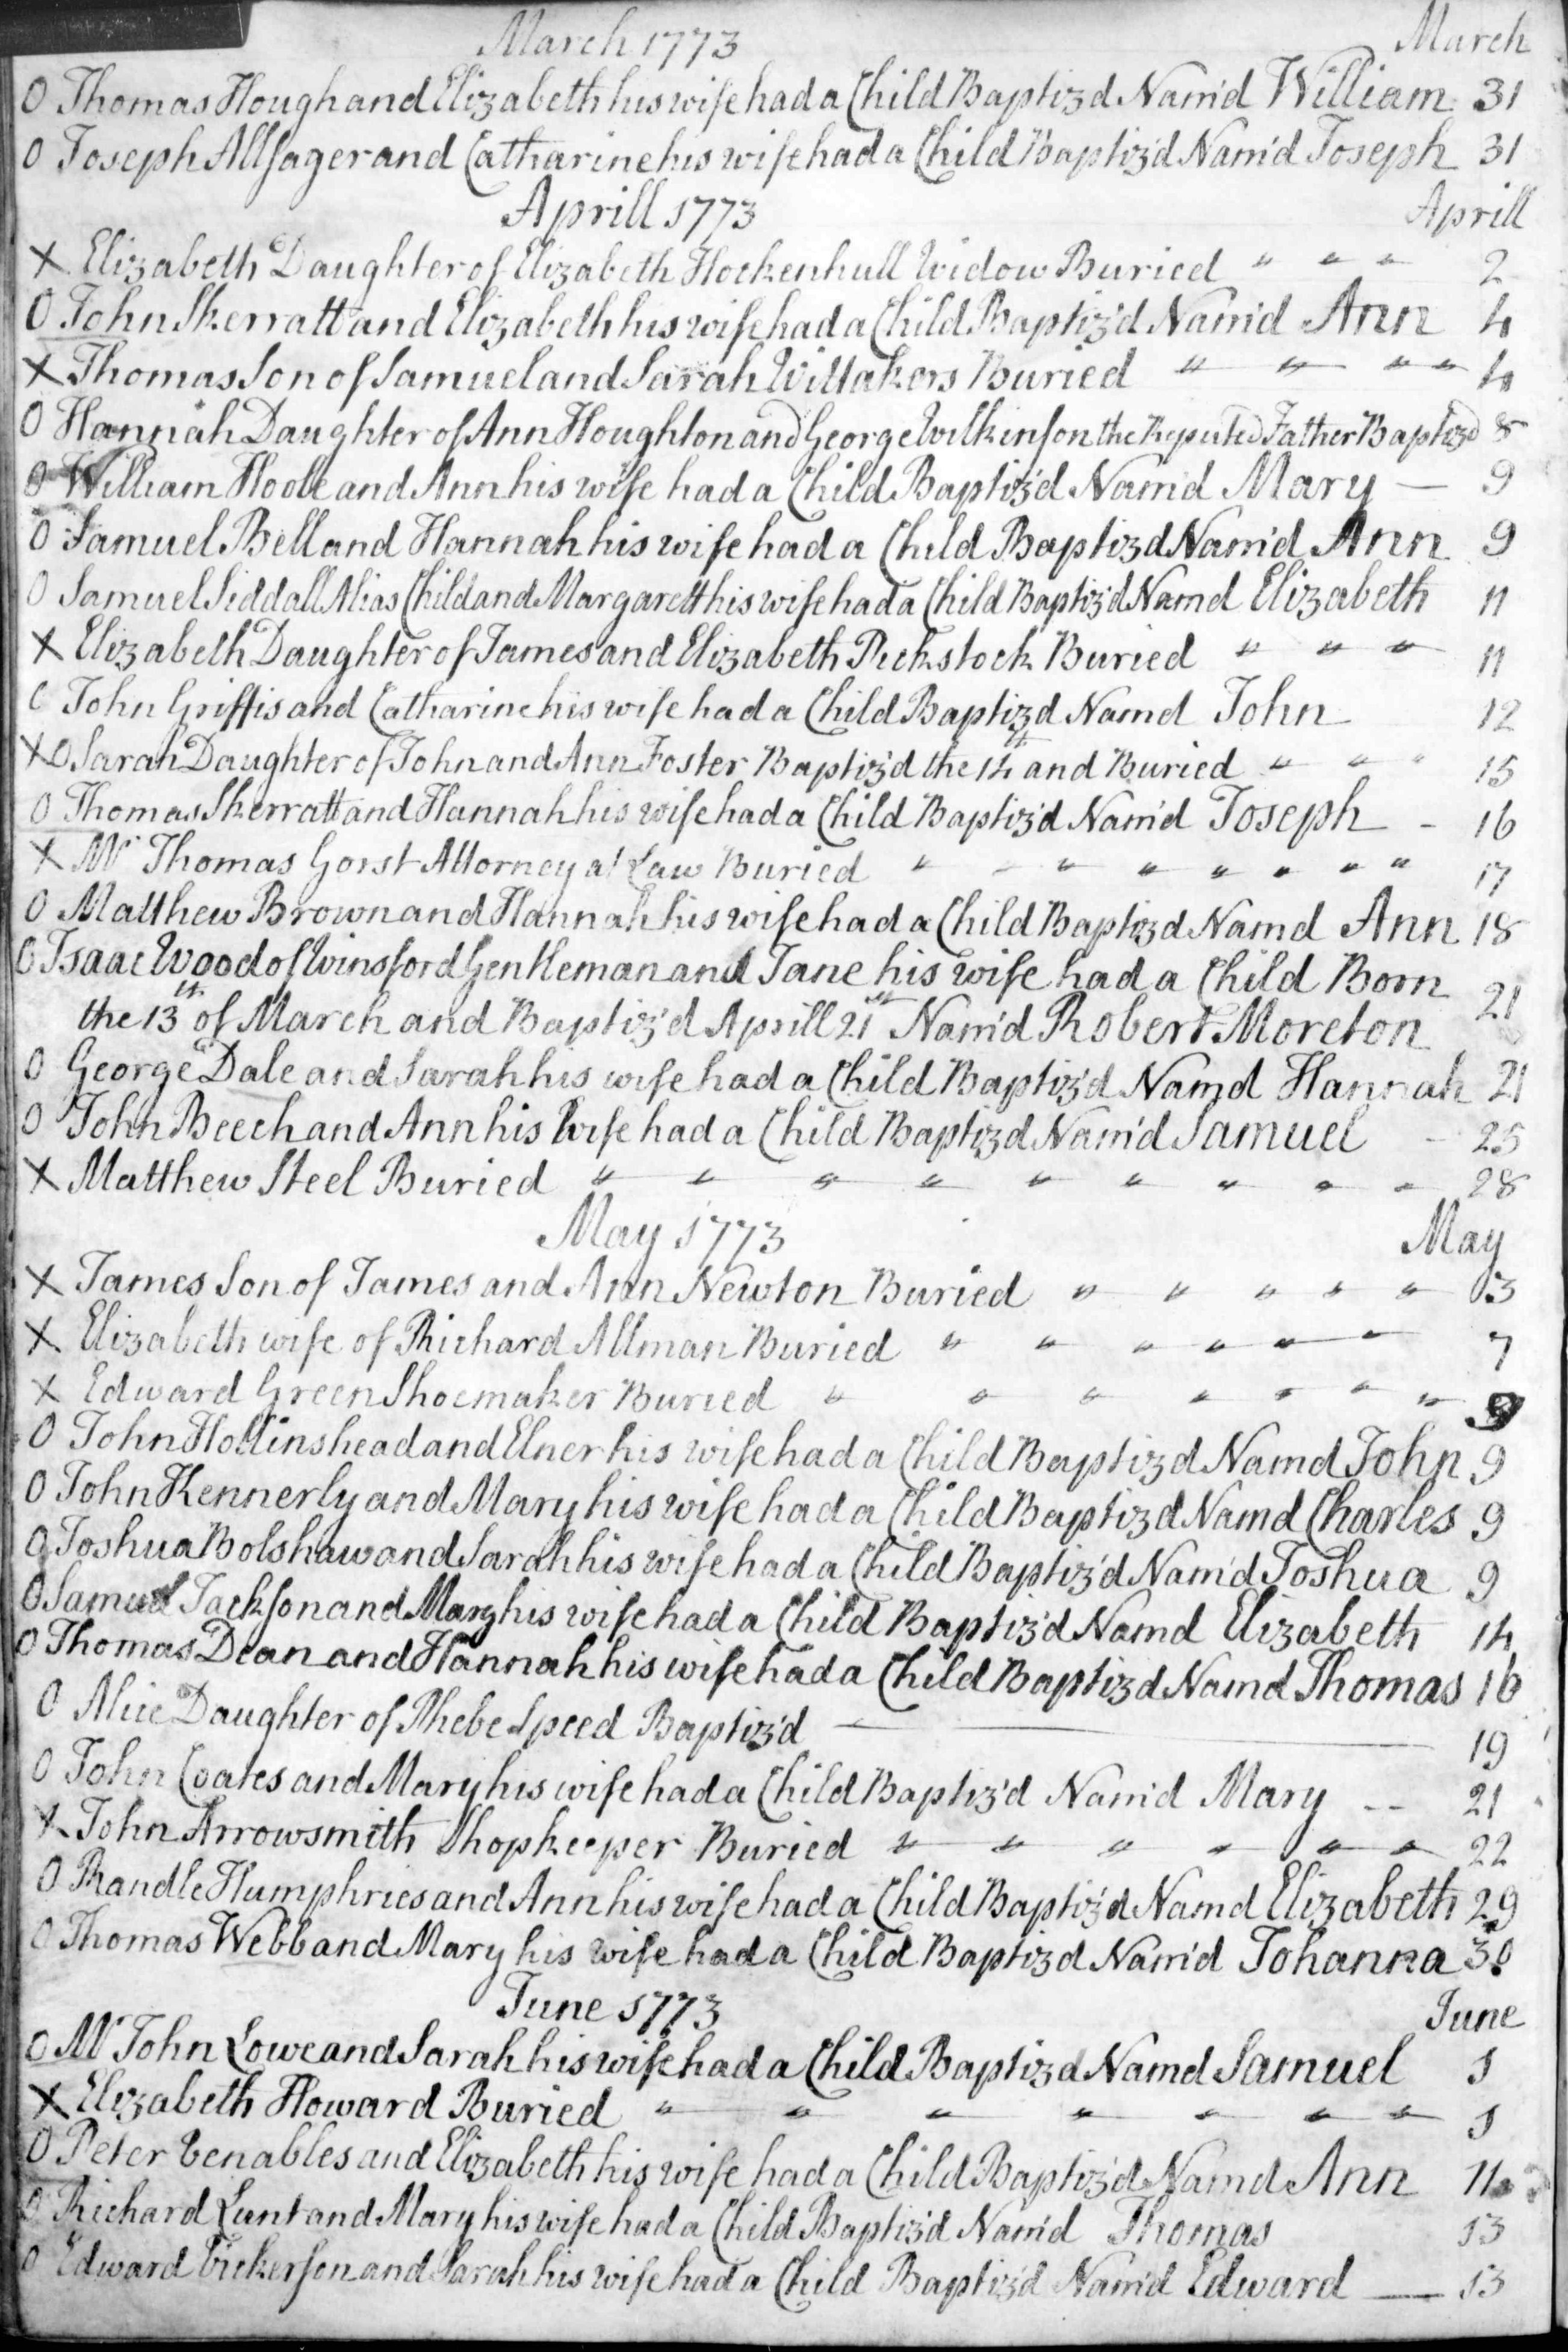 March 1773 March
O Thomas Hough and Elizabeth his wife had a Child Baptiz'd Nam'd William 31
O Joseph Allsager and Catharine his wife had a Child Baptiz'd Nam'd Joseph 31
Aprill 1773 Aprill
X Elizabeth Daughter of Elizabeth Hockenhull Widow Buried " " " 2
O John Skerratt and Elizabeth his wife had a Child Baptiz'd Nam'd Ann 4
X Thomas Son of Samuel and Sarah Wittakers Buried " " " " 4
O Hannah Daughter of Ann Houghton and George Wilkinson the Reputed Father Baptizd 8
O William Hoole and Ann his wife had a Child Baptiz'd Nam'd Mary — 9
O Samuel Bell and Hannah his wife had a Child Baptizd Nam'd Ann 9
O Samuel Siddall Alias Child and Margarett his wife had a Child Baptiz'd Namd Elizabeth 11
X Elizabeth Daughter of James and Elizabeth Pickstock Buried " " " 11
O John Griffis and Catharine his wife had a Child Baptizd Namd John 12
XO Sarah Daughter of John and Ann Foster Baptiz'd the 14th and Buried " " " 15
O Thomas Skerratt and Hannah his wife had a Child Baptiz'd Nam'd Joseph - 16
X Mr Thomas Gorst Attorney at Law Buried " " " " " " " " 17
O Matthew Brown and Hannah his wife had a Child Baptizd Namd Ann 18
O Isaac Wood of Winsford Gentleman and Jane his wife had a Child Born
the 13th of March and Baptiz'd Aprill 21st Nam'd Robert Moreton 21
O George Dale and Sarah his wife had a Child Baptiz'd Namd Hannah 21
O John Beech and Ann his Wife had a Child Baptizd Nam'd Samuel - 25
X Matthew Steel Buried " " " " " " " " " 28
May 1773 May
X James Son of James and Ann Newton Buried " " " " " 3
X Elizabeth wife of Richard Allman Buried " " " " " " 7
X Edward Green Shoemaker Buried " " " " " " " 9
O John Hollinshead and Elner his wife had a Child Baptizd Namd John 9
O John Kennerly and Mary his wife had a Child Baptizd Namd Charles 9
O Joshua Bolshaw and Sarah his wife had a Child Baptiz'd Nam'd Joshua 9
O Samuel Jackson and Mary his wife had a Child Baptiz'd Namd Elizabeth 14
O Thomas Dean and Hannah his wife had a Child Baptizd Namd Thomas 16
O Alice Daughter of Phebe Speed Baptiz'd — 19
O John Coates and Mary his wife had a Child Baptiz'd Nam'd Mary -- 21
X John Arrowsmith Shopkeeper Buried " " " " " " 22
O Randle Humphries and Ann his wife had a Child Baptiz'd Namd Elizabeth 29
O Thomas Webb and Mary his wife had a Child Baptizd Nam'd Johanna 30
June 1773 June
O Mr John Lowe and Sarah his wife had a Child Baptizd Namd Samuel 1
X Elizabeth Howard Buried " " " " " " " 1
O Peter Venables and Elizabeth his wife had a Child Baptiz'd Namd Ann 11
O Richard Lunt and Mary his wife had a Child Baptiz'd Nam'd Thomas 13
O Edward Vickerson and Sarah his wife had a Child Baptiz'd Nam'd Edward — 13